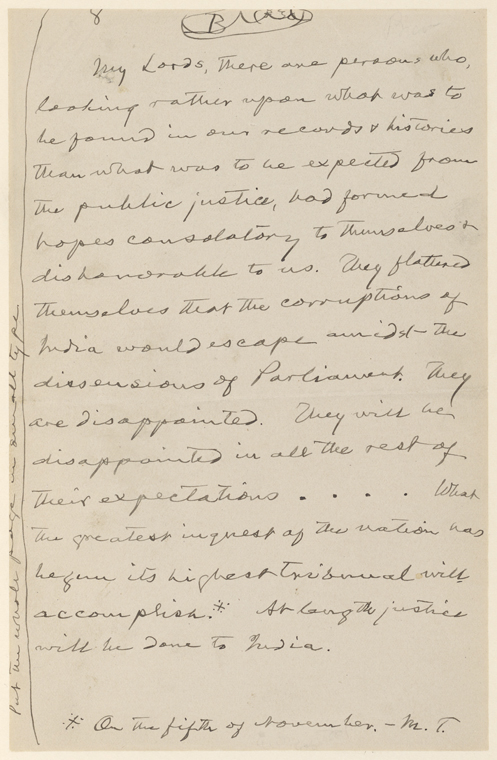 8
My Lords, there are persons who,
looking rather upon what was to
be found in our records & histories
than what was to be expected from
the public justice, had formed
hopes consolatory to themselves &
dishonorable to us. They flattered
themselves that the corruptions of
India would escape amidst the
dissensions of Parliament. They
are disappointed. They will be
disappointed in all the rest of
their expectations . . . . What
the greatest inquest of the nation has
begun its highest tribunal will
accomplish.* At length justice
will be done to India.
* On the fifth of November. — M. T.
Put the whole page in small type